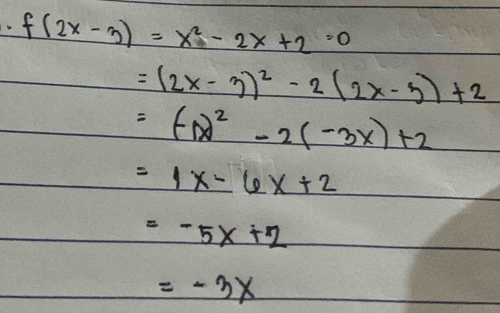 . f(2x - 3) = x² - 2x + 2 = 0
= (2x - 3)² - 2(2x - 3) + 2
= (-1x)² - 2(-3x) + 2
= 1x - 6x + 2
= -5x + 2
= -3x